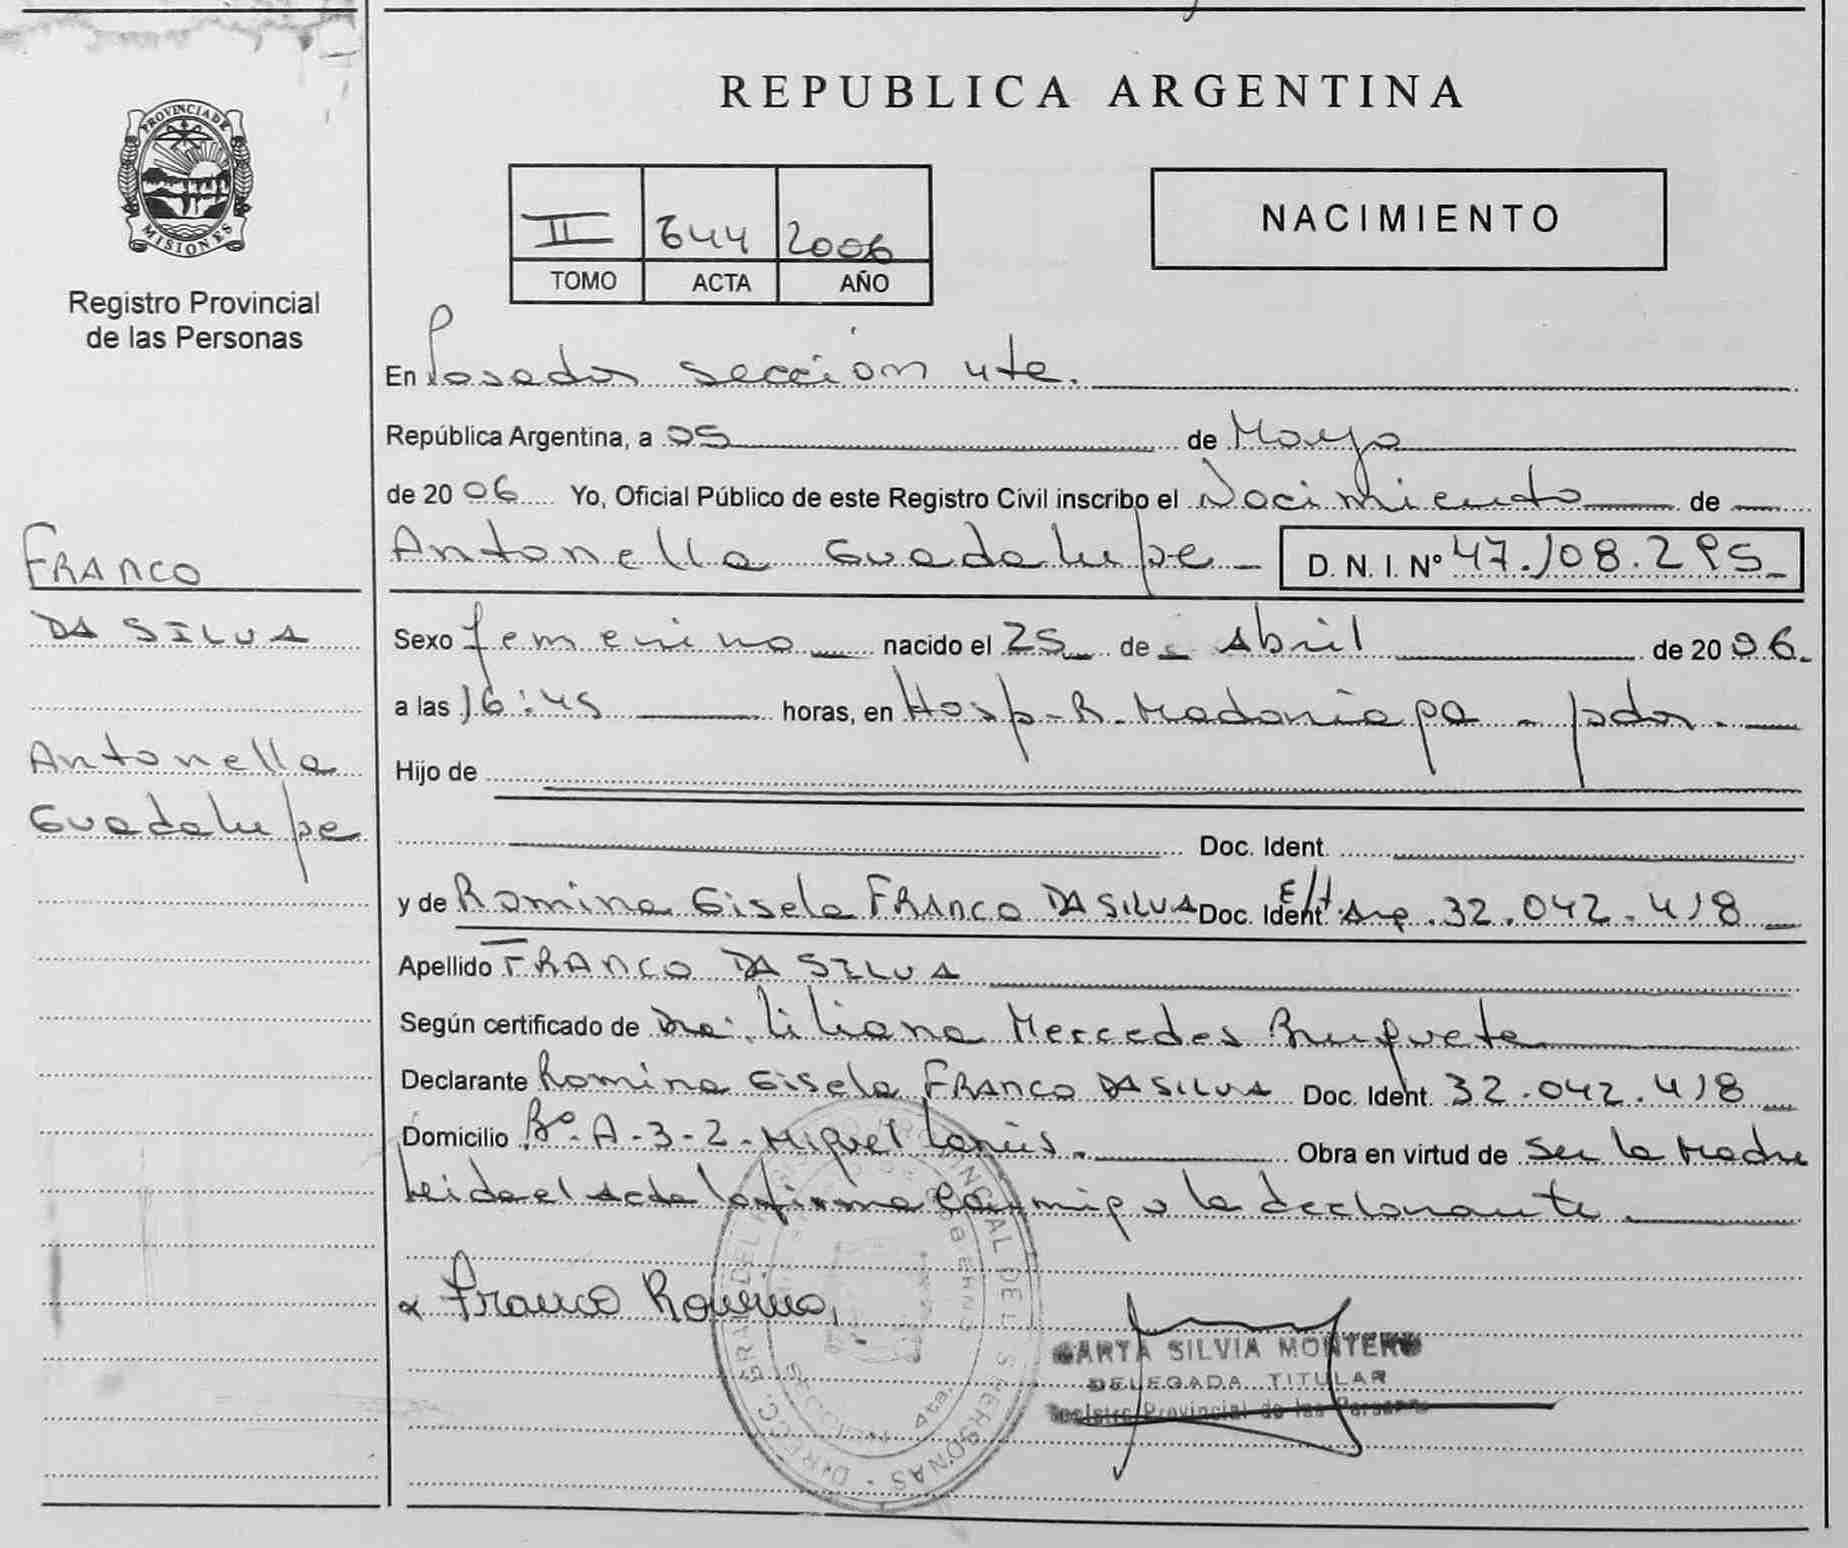 REPUBLICA ARGENTINA
PROVINCIA DE
MISIONES
Registro Provincial
de las Personas
II 644 2006
TOMO ACTA AÑO
NACIMIENTO
En Posadas sección 4te.
República Argentina, a 05 de Mayo
de 2006 Yo, Oficial Público de este Registro Civil inscribo el Nacimiento de
Antonella Guadalupe D.N.I. Nº 47.108.295
FRANCO
DA SILVA
Antonella
Guadalupe
Sexo femenino nacido el 25 de Abril de 2006.
a las 16:45 horas, en Hosp. R. Madariaga - pdas.
Hijo de
Doc. Ident.
y de Romina Gisela FRANCO DA SILVA Doc. Ident. Arg. 32.042.418
Apellido FRANCO DA SILVA
Según certificado de Dra. Liliana Mercedes
Declarante Romina Gisela FRANCO DA SILVA Doc. Ident. 32.042.418
Domicilio Bº. A-3-2-Miguel Lanús. Obra en virtud de ser la Madre
leida el acta la firma conmigo la declarante
Franco Romina
DIRECC. GRAL DEL REGISTRO PROVINCIAL DE LAS PERSONAS
SECCION 4ta.
SILVIA MONTERO
DELEGADA TITULAR
Registro Provincial de las Personas